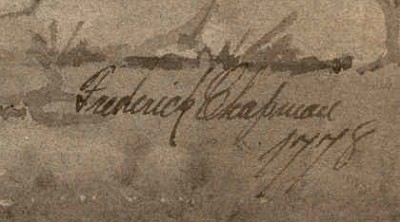 Frederick Chapman
1778